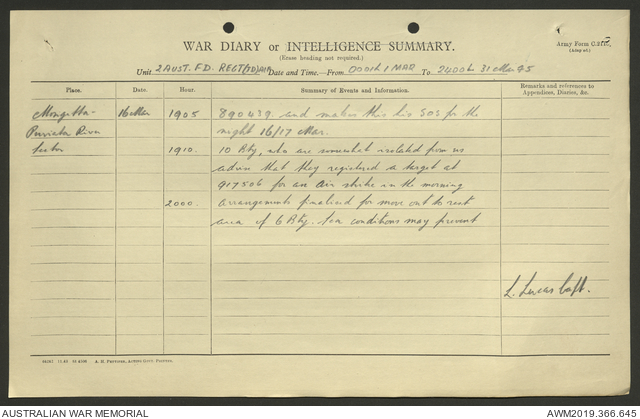 WAR DIARY or INTELLIGENCE SUMMARY.
(Erase heading not required.)
Army Form C.2118.
Unit 2 AUST. FD. REGT (JD) AIF Date and Time.—From 0001h 1 MAR To 2400h 31 Mar 45
Place. Date. Hour. Summary of Events and Information. Remarks and references to Appendices, Diaries, &c.
Mongetta- 16 Mar 1905 890439 and makes this his SOS for the
Puriata River night 16/17 Mar.
Sector 1910. 10 Bty, who are somewhat isolated from us
advise that they registered a target at
917506 for an air strike in the morning
2000. Arrangements finalised for move out to rest
area of 6 Bty. Sea conditions may prevent
L. Lucas Capt.
AUSTRALIAN WAR MEMORIAL
AWM2019.366.645